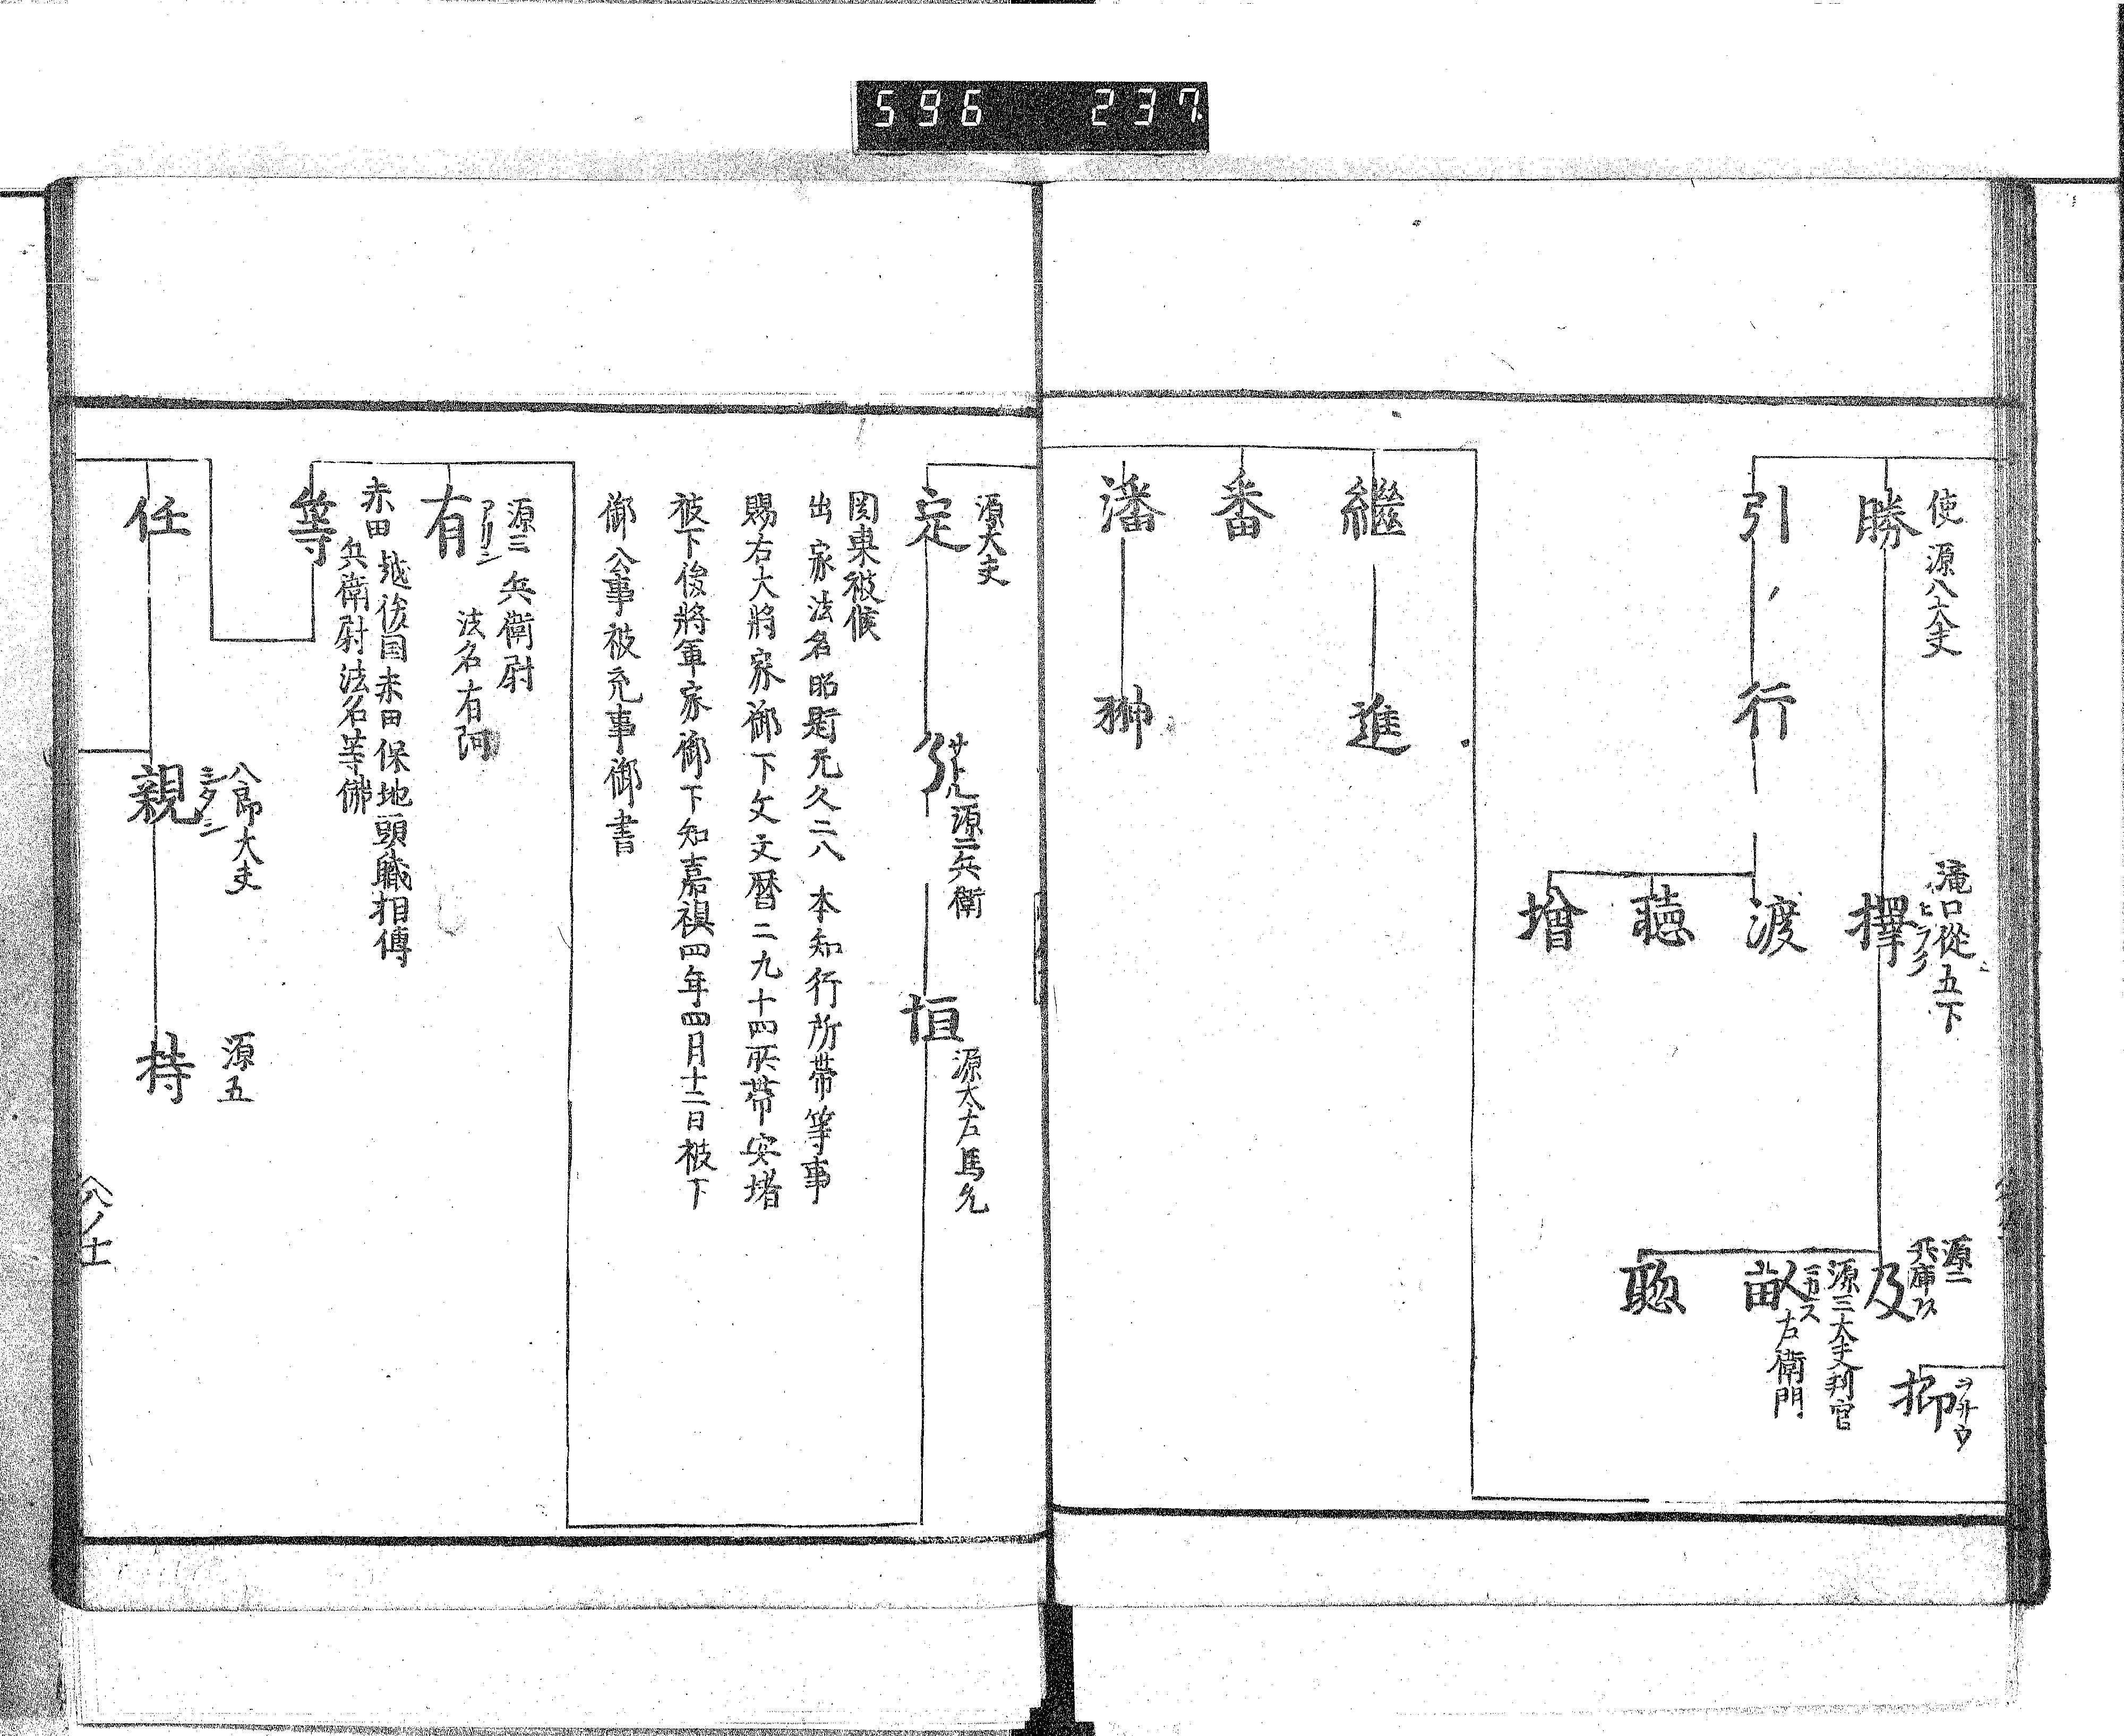 596 237
使 源八大夫
勝
滝口從五下
擇
源二
兵庫
及
抑
引
行
渡
源三大夫判官
左衛門
聴
聡
增
繼
進
番
潘
翀
源大夫
定
源二兵衛
恒
源太左馬允
関東被候
出家法名昭 元久二八 本知行所帯等事
賜右大將家御下文文暦二九十四所帯安堵
被下後將軍家御下知嘉禎四年四月十二日被下
御公事被充事御書
源三 兵衛尉
有
アリシ
法名有阿
赤田 越後国赤田保地頭職相傳
兵衛尉法名等佛
等
任
八郎大夫
親
源五
持
八ノ十